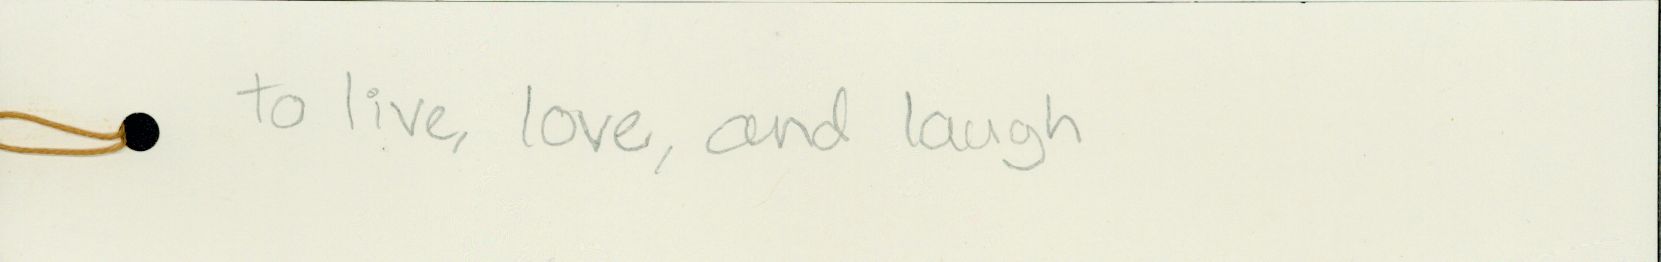 to live, love, and laugh